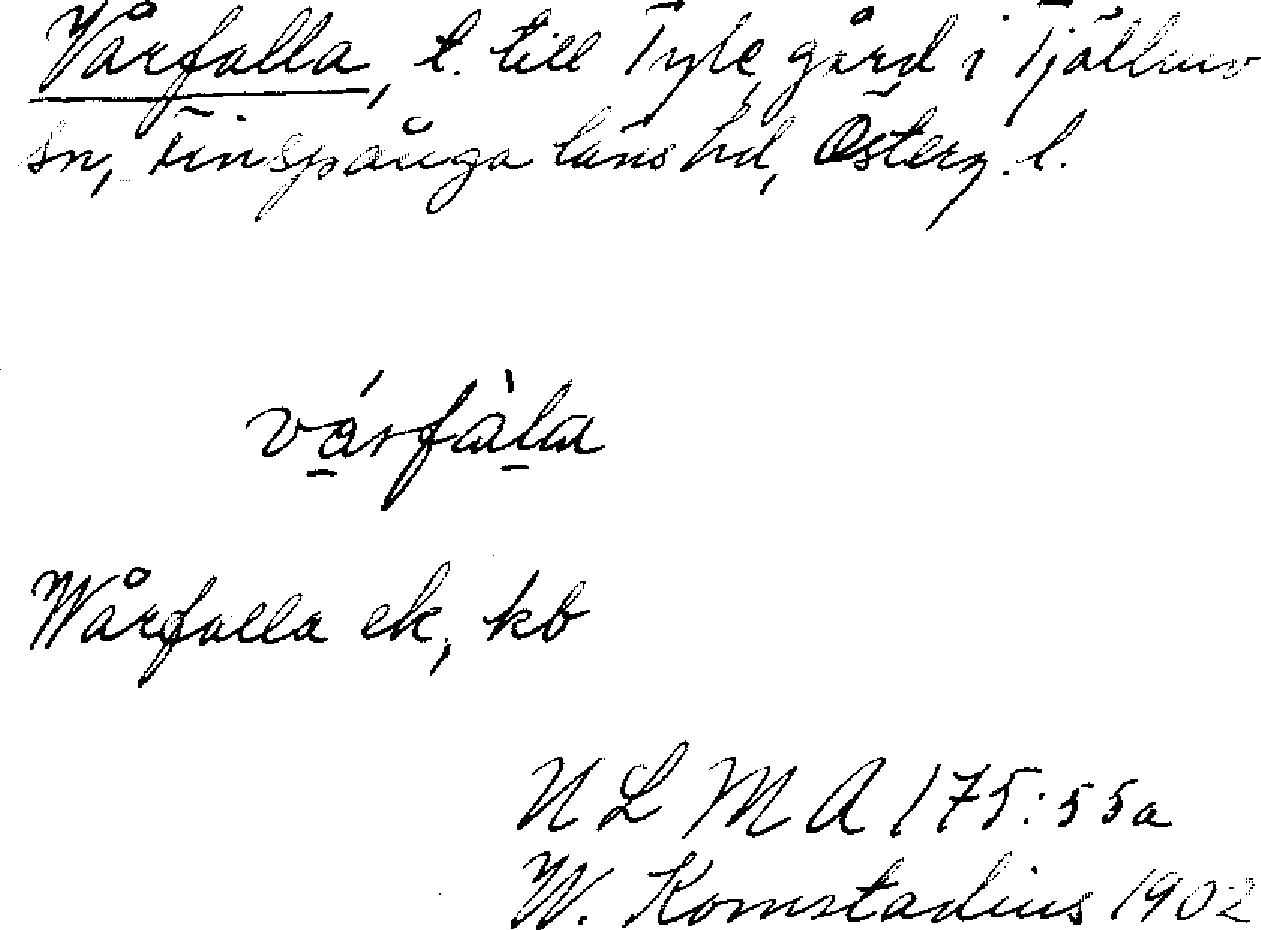 Vårfalla, t. till Tyle gård i Tjällmo
sn, Finspånga läns hd, Österg. l.
várfàla
Wårfalla ek, kb
ULMA 175:55a
W. Komstadius 1902